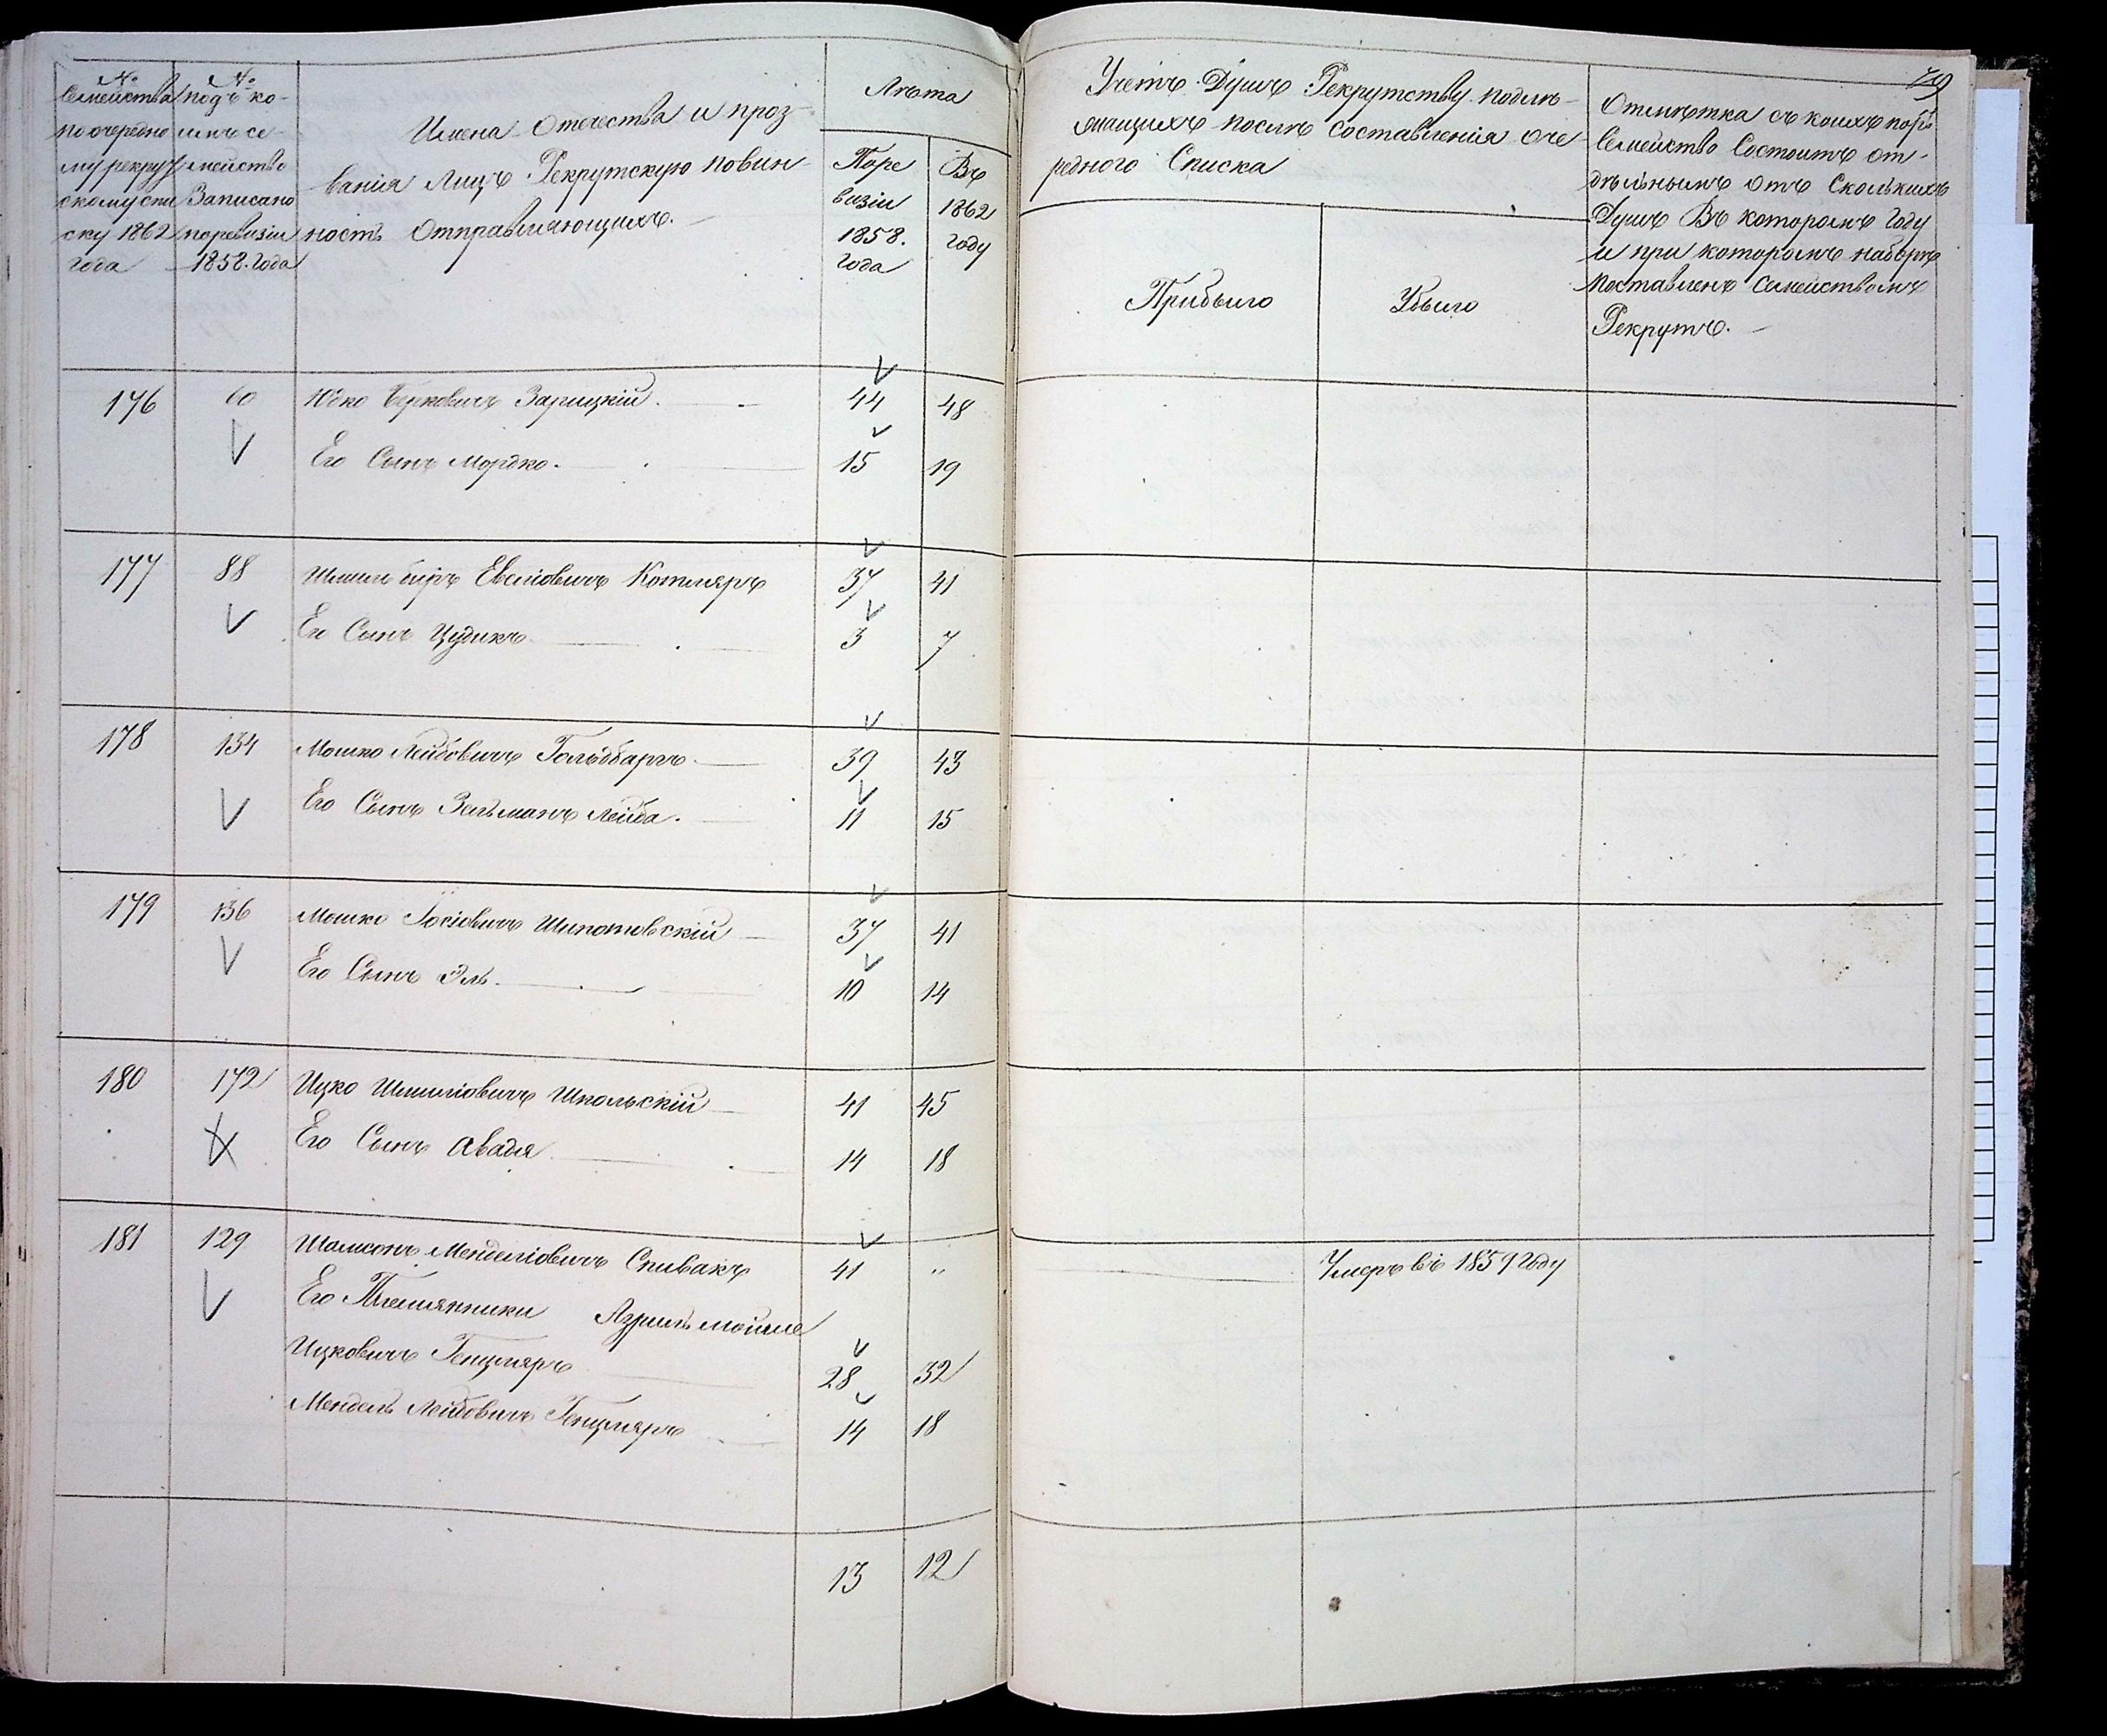 №
Семейства
по очередно
му рекрут
скому спи
ску 1862
года
№
подъ ко-
имъ се-
мейство
Записано
поревизіи
1858. года
Имена Отечества и проз-
ванія Лицъ Рекрутскую повин
ность Отправляющихъ. —
Лѣта
Поре
визіи
1858.
года
Въ
1862
году
Учетъ Душъ Рекрутству подле-
жащихъ послѣ составленія оче
редного Списка
Прибыло
Убыло
79
Отмѣтка съ коихъ поръ
Семейство Состоитъ от-
дѣльнымъ отъ Сколькихъ
Душъ Въ которомъ году
и при которомъ наборѣ
поставленъ Семействомъ
Рекрутъ. —
176 60 Юдко Берковичъ Зарицкій. 44 48
Его Сынъ Мордко. 15 19
177 88 Шмиль Беръ Евеліовичъ Котляръ 37 41
Его Сынъ Цудикъ 3 7
178 134 Мошко Лейбовичъ Гольдбаргъ 39 43
Его Сынъ Зельманъ Лейба. 11 15
179 136 Мошко Іосіовичъ Шипотовскій 37 41
Его Сынъ Эль. 10 14
180 172 Ицко Шмиліовичъ Шпольскій 41 45
Его Сынъ Авадя 14 18
181 129 Шамсонъ Менделіовичъ Спивакъ 41 " Умеръ въ 1859 году
Его Племянники Азриль Мойше
Ицковичъ Генцляръ 28 32
Мендель Лейбовичъ Генцляръ 14 18
13 12